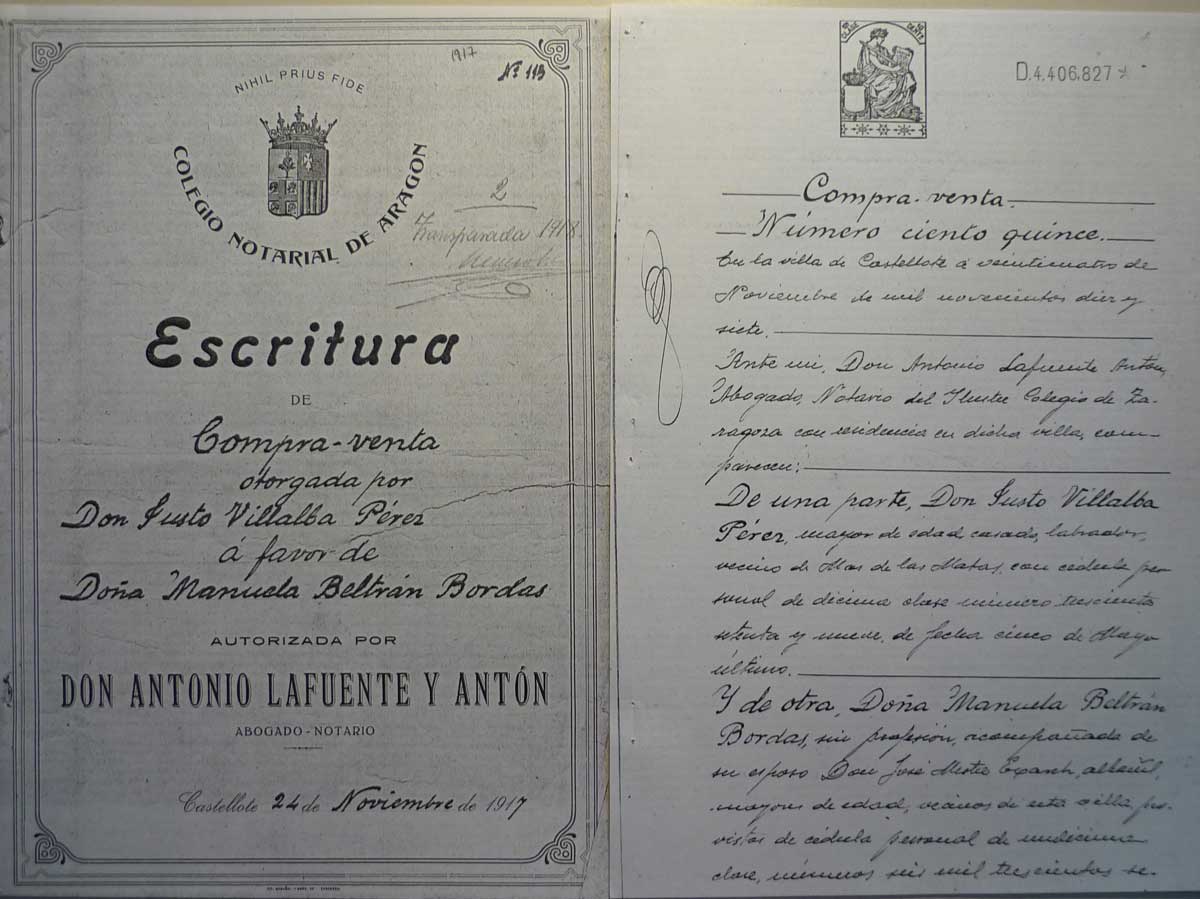 1917
Nº 115
NIHIL PRIUS FIDE
COLEGIO NOTARIAL DE ARAGON
2
1918
Escritura
DE
Compra-venta
otorgada por
Don Justo Villalba Pérez
á favor de
Doña Manuela Beltrán Bordas
AUTORIZADA POR
DON ANTONIO LAFUENTE Y ANTÓN
ABOGADO-NOTARIO
Castellote 24 de Noviembre de 1917
D.4.406,827
Compra-venta.
Número ciento quince.
En la villa de Castellote á veinticuatro de
Noviembre de mil novecientos diez y
siete.
Ante mi, Don Antonio Lafuente Antón,
Abogado, Notario del Ilustre Colegio de Za-
ragoza con residencia en dicha villa, com-
parecen:
De una parte, Don Justo Villalba
Pérez, mayor de edad, casado, labrador,
vecino de Mas de las Matas, con cédula per
sonal de décima clase número trescientos
setenta y nueve, de fecha cinco de Mayo
último.
Y de otra, Doña Manuela Beltrán
Bordas, sin profesión, acompañada de
su esposo Don José Mestre albañil,
mayores de edad, vecinos de esta villa, pro-
vistos de cédula personal de undécima
clase, números seis mil trescientos se-